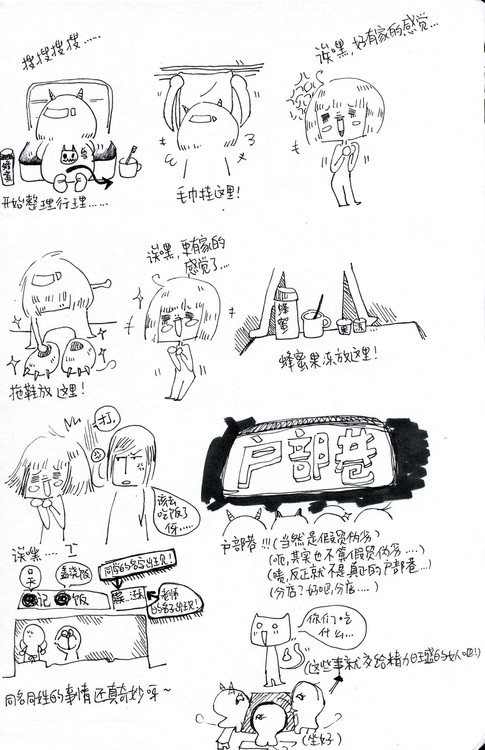 搜搜搜搜……
诶嘿,好有家的感觉…
蜂蜜
开始整理行理……
毛巾挂这里!
诶嘿,更有家的
感觉了…
蜂蜜
拖鞋放这里!
蜂蜜果冻放这里!
打.
该去
吃饭了
呀……
诶嘿……
户部巷
户部巷!!!(当然是假货伪劣)
(呃,其实也不算假货伪劣….)
(嗯,反正就不是真正的户部巷…)
(分店?好吧,分店….)
同学的名字出现!
老师
的名字出现!
记
饭
同名同姓的事情还真奇妙呀~
你们吃
什么…
(这些事就交给精力旺盛的女人吧!)
(坐好)